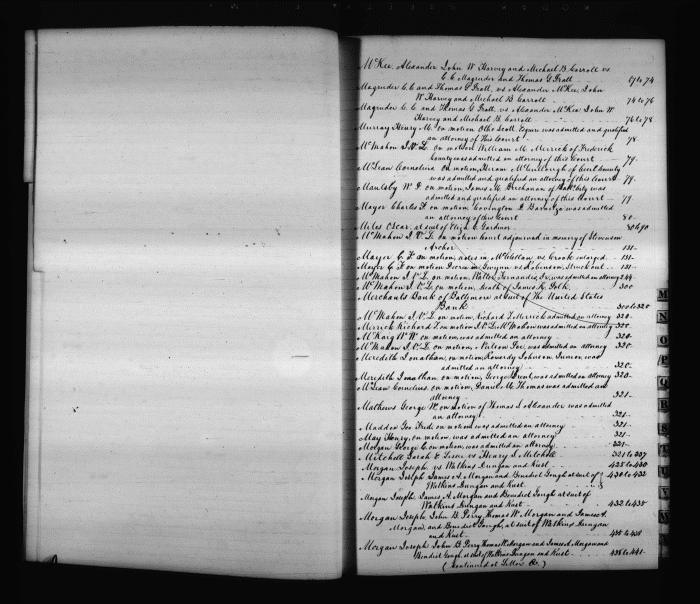 McKee, Alexander John W Harvey and Michael B Carroll vs
C C Magruder and Thomas G Pratt 67 to 74
Magruder C C and Thomas G Pratt, vs Alexander McKee, John
W Harvey and Michael B Carroll 74 to 76
Magruder C C and Thomas G Pratt, vs Alexander McKee John W
Harvey and Michael B. Carroll 76 to 78
Murray Henry M. on motion Otho Scott Esquire was admitted and qualified
an attorney of this Court 78
McMahon J V L. on motion William M. Merrick of Frederick
County was admitted an attorney of this Court 79
McLean Cornelius on motion, Hiram McCullough of Cecil County
was admitted and qualified an attorney of this Court 79
Maulsby W P. on motion, James M. Buchanan of Balt. City was
admitted and qualified an attorney of this Court 79
Mayer Charles F. on motion Covington D. was admitted
an attorney of this Court 80
Miles Oscar, at suit of Eliza C Gardiner 80 to 90
McMahon J. V. L. on motion Court adjourned in memory of Stevenson
Archer 131
Mayer C. F. on motion, rules in McClellan vs Crook enlarged 131
Mayer C. F. on motion Decree in Gwynn vs Robinson, Struck out 131
McMahon J. V. L. on motion, Walter Fernandis Jr. was admitted an attorney
McMahon J. V. L. on motion, death of James K. Polk 300
Merchants Bank of Baltimore at suit of The United States
Bank 300 to 320
McMahon J. V. L. on motion, Richard L Merrick admitted an attorney 320
Merrick Richard L on motion J. V. L. McMahon was admitted an attorney 320
W W on motion, was admitted an attorney 320
McMahon J. V. L. on motion, Neilson Poe, was admitted an attorney 320
Meredith Jonathan, on motion, Reverdy Johnson, Junior, was
admitted an attorney 320
Meredith Jonathan, on motion, George Dent, was admitted an attorney 320
McLean Cornelius, on motion, Daniel M. Thomas was admitted an
attorney 321
Mathews George W, on motion of Thomas S Alexander was admitted
an attorney 321
Maddox Geo. Fred. on motion was admitted an attorney 321
May Henry, on motion, was admitted an attorney 321
Morgan George C. on motion, was admitted an attorney 321
Mitchell Sarah E. Lessee vs Henry S. Mitchell 321 to 327
Morgan Joseph, vs Watkins Dungan and Rust 428 to 430
Morgan Joseph James A. Morgan and Benedict Gough at suit of
Watkins Dungan and Rust 430 to 432
Morgan Joseph, James A Morgan and Benedict Gough at suit of
Watkins Dungan and Rust 432 to 435
Morgan Joseph John B. Perry, Thomas W. Morgan and James A.
Morgan, and Benedict Gough, at suit of Watkins Dungan
and Rust 435 to 438
Morgan Joseph, John B. Perry Thomas W. Morgan and James A Morgan and
Benedict Gough, at suit of Watkins Dungan and Rust 438 to 441
(Continued at Letter &c.)
M
N
O
P
Q
R
S
T
U V
W